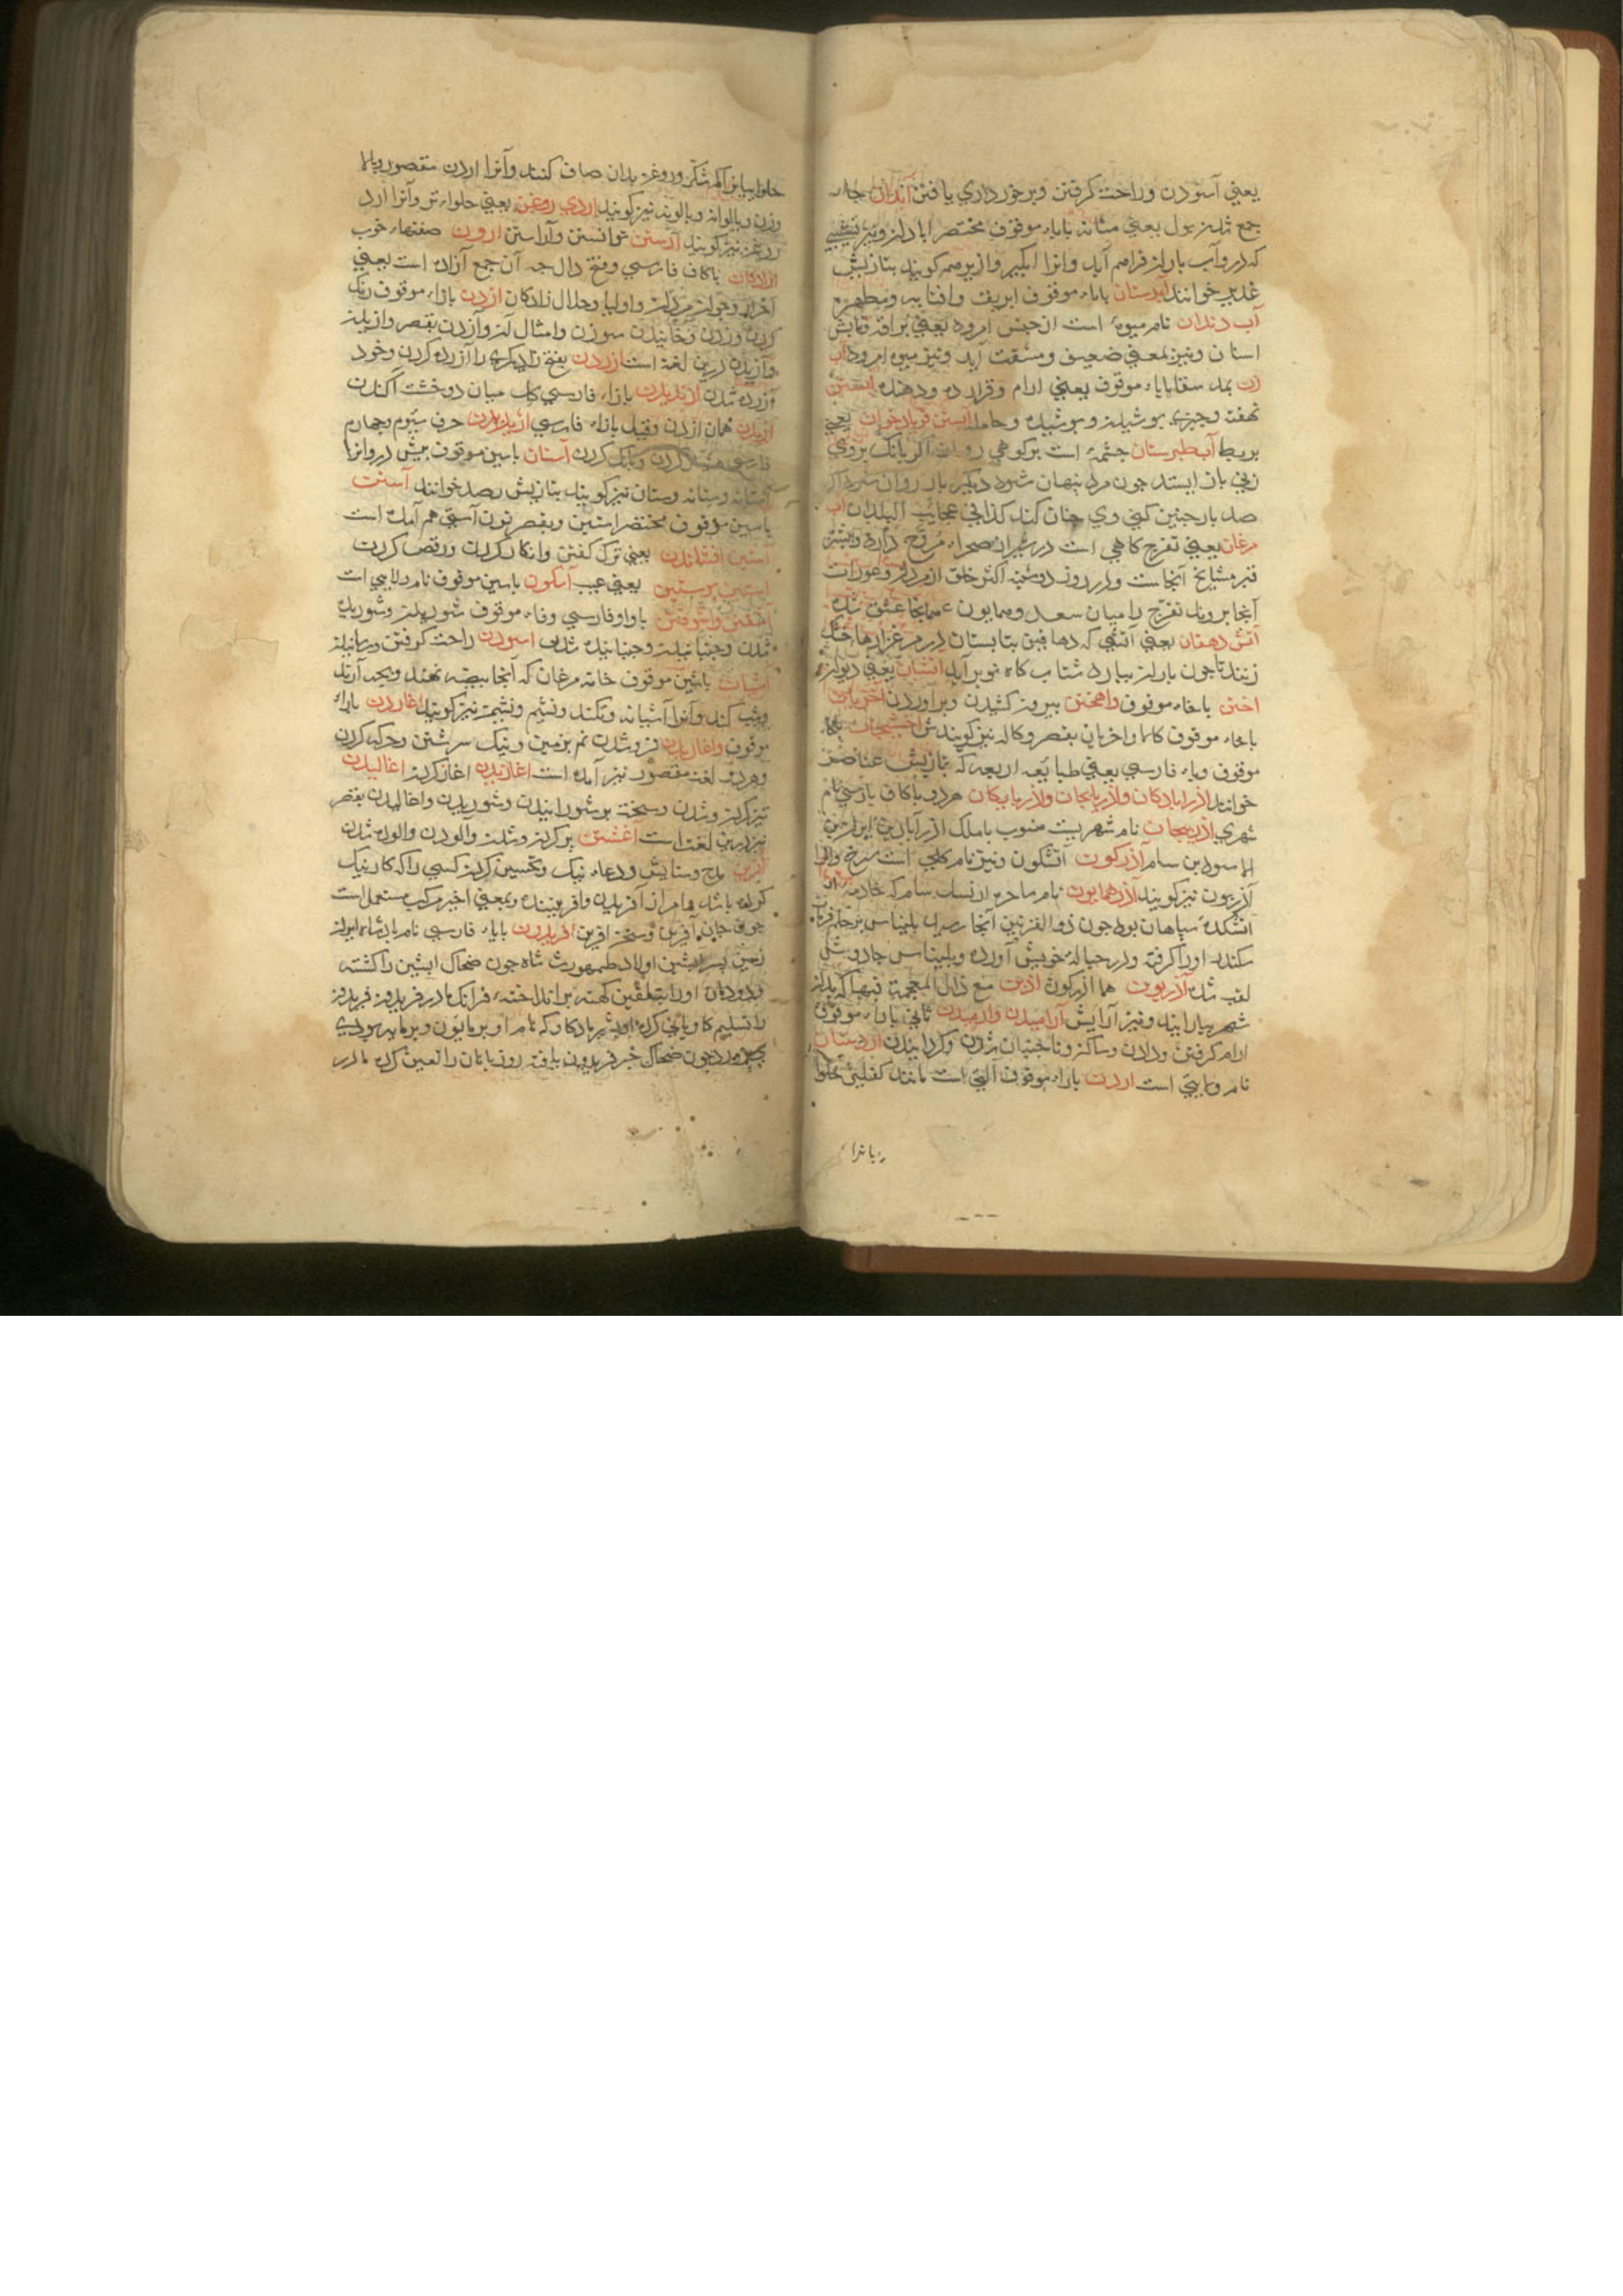 یعنی آسودن وراحت کرفتن وبرخورداری یافتن آبدان جاء
جمع شدن بول یعنی مثانه باباء موقوف مختصر ابادان ونیز نشیبی
که درو آب باران فراهم آید وانرا ابکیر وازیر هم کویند بتازیش
غدیر خوانند آبدستان باباء موقوف ابریق وافتابه ومطهره
آب دندان نام میوه است از جنس امرود یعنی
اسان ونیز بمعنی ضعیف ومشقت آید ونیز میوه امرود آب
زن بمد سقا باباء موقوف یعنی ارام وقرار ده ودهنده ابستن
نهفته وچیزی پوشیدن وپوشیده وحامله ابستن فریاد خوان یعنی
بربط آب طبرستان چشمه است برکوهی اکر بانک بروی
زنی باز ایستد چون مرد پنهان شود دیکر بار روان شود اکر
صد بار چنین کنی وی چنان کند کذا فی عجایب البلدان آب
مرغان یعنی تفرج کاهی است در شیراز صحراء دارد وبیشتر
قبر مشایخ آنجاست ودر روز اکثر خلق از مردان وعورات
آنجا بروند تفرج را میان سعد وهمایون همانجا عشق شده
آتش دهقان یعنی آتشی که دهاقین بتابستان در مرغزارها خشک
زنند تا چون باران ببارد شتاب کاه نو برآید اتشان یعنی دیوان
اختن باخاء موقوف واهختن بیرون کشیدن وبرآوردن اخریان
باخاء موقوف کالا واخریان بقصر وکاله نیز کویندش اخشیجان
موقوف وباء فارسی یعنی طبایع اربعه که بتازیش عناصر
خوانند اذرابادکان واذربایجان واذربایکان هردو باکاف پارسی نام
شهری اذربیجان نام شهریست منسوب باملک اذرآبادبن ایران بن
الاسود بن سام آذرکون آتشکون ونیز نام کلی است سرخ وانرا
آذریون نیز کویند آذرهمایون نام ساحره از نسل سام که خادمه
آتشکده سپاهان بود چون ذوالقرنین آنجا رسید بلیناس بحکم فرمان
سکندر اورا کرفته ودر حباله خویش آورد وبلیناس جادو شکن
لقب شد آذریون هما آذرکون اذین مع ذال المعجمة قبها که بدان
شهر بیارایند ونیز آرایش آرامیدن وارمیدن ثانی باراء موقوف
ارام کرفتن ودادن وساکن وناجنبان شدن وکردانیدن اردستان
نام ولایتی است اردن باراء موقوف آلتی است مانند کفلیز حلوا
حلوا پزان شکر وروغن بدان صاف کنند وآنرا اردن مقصور وپالا
وزن وپالوانه وپالونه نیز کویند اردی روغن یعنی حلواءتر وآنرا ارد
روغن نیز کویند آرستن توانستن وآراستن ارون صفتهاء خوب
ازادکان باکاف فارسی وفتح دال جه آن جمع آزاده است یعنی
احرار وجوان مردان واولیا وحلال زادکان ازدن بازاء موقوف رنک
کردن وزدن وخانیدن سوزن وامثال آن وآزدن بقصر وازیدن
وآزیدن درین لغة است ازردن بفتح زا دیکری را آزرده کردن وخود
آزرده شدن ازندیدن بازاء فارسی کل میان دوخشت آکندن
آژیدن همان ازدن وقیل بازاء فارسی اژیریدن حرف سیوم وچهارم
فارسی هشیار کردن وبانک کردن آستان باسین موقوف پیش در وانرا
آستانه وستانه وستان نیز کویند بتازیش رصد خوانند آستن
باسین موقوف مختصر استین وبقصر نون آستی هم آمده است
استین افشاندن یعنی ترک کفتن وانکار کردن ورقص کردن
استین پوستین یعنی عیب آسکون باسین موقوف نام دریایی است
آشفتن وآشوفتن باواو فارسی وفاء موقوف شوریدن وشوریده
شدن وجنبانیدن وجنبانیده شدن اسودن راحت کرفتن
آشیان باشین موقوف خانه مرغان که آنجا بیضه نهند وبچه آرند
وشب کنند وآنرا آشیانه وتکند ونشیم ونشیمن نیز کویند اغاردن باراء
موقوف واغاریدن فروشدن نم بزمین ونیک سرشتن وحرکه کردن
وهردو لغت مقصور نیز آمده است اغازیدن اغاز کردن اغالیدن
تیز کردن وشدن وسخت بر شورانیدن وشوریدن واغالیدن بقصر
نیز درین لغت است آغشتن پر کردن وشدن والودن والوده شدن
آفرین مدح وستایش ودعاء نیک وتحسین کردن کسی را که کار نیک
کرده باشد وامر از آفریدن وآفریننده وبمعنی اخیر مرکب مستعمل است
چون جان آفرین وسخن افرین افریدون باباء فارسی نام پادشاه ایران
زمین پسر ابتین اولاد طهمورث شاه چون ضحاک ابتین را کشته
ودودمان اورا برانداخته فرانک مادر فریدون فریدون
را تسلیم کاوبانی کرده اورا بشیر مادکاو که نام او برمایون وبرمایه بودی
پرورد چون ضحاک خبر فریدون یافته روزبانان را تعین کرده مادر